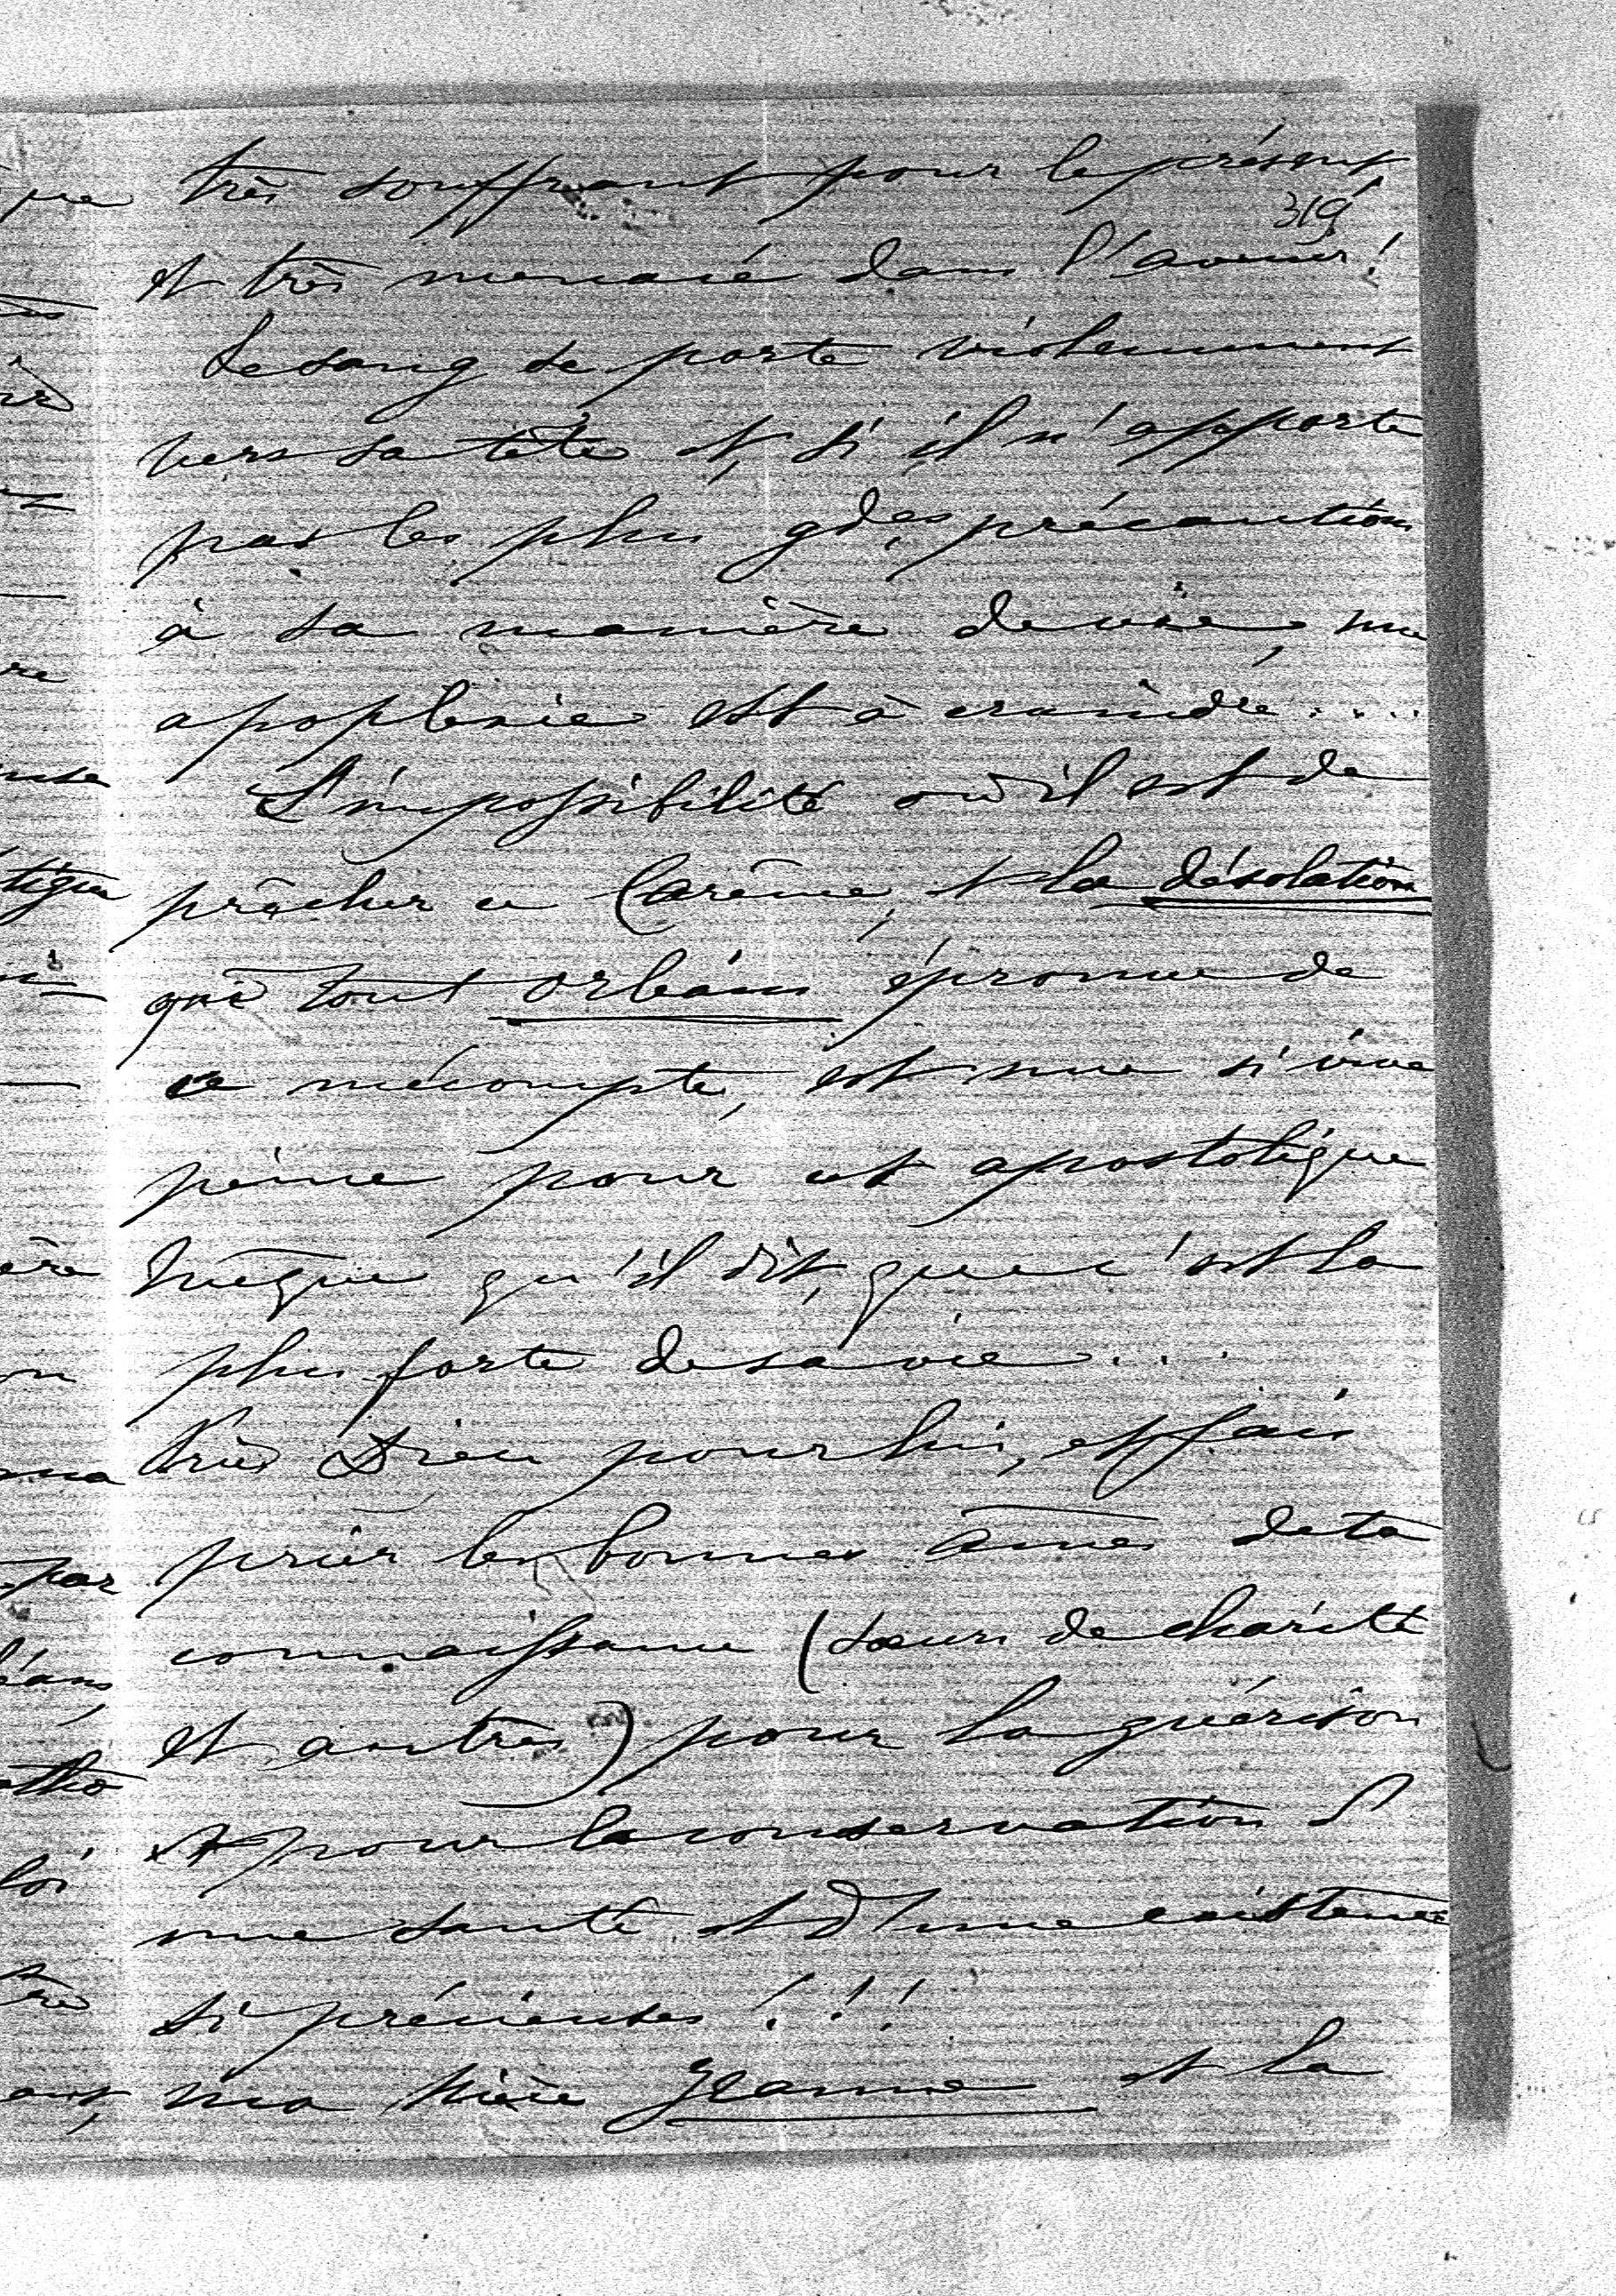 très souffrant pour le présent,
319
et très menacé dans l'avenir!
Le sang se porte violemment
vers sa tête et, si il n'apporte
pas les plus gdes précautions
à sa manière de vie, une
apoplexie est à craindre....
L'impossibilité où il est de
prêcher ce Carême, et la désolation
que tout Orléans éprouve de
ce mécompte, est une si vive
peine pour cet apostolique
évêque qu'il dit, que c'est la
plus forte de sa vie...
Prie Dieu pour lui, et fais
prier les bonnes âmes de ta
connaissance (soeurs de charité
et autres) pour la guérison
et pour la conservation d'
une santé et d'une existence
si précieuses!!!
ma nièce Jeanne et la